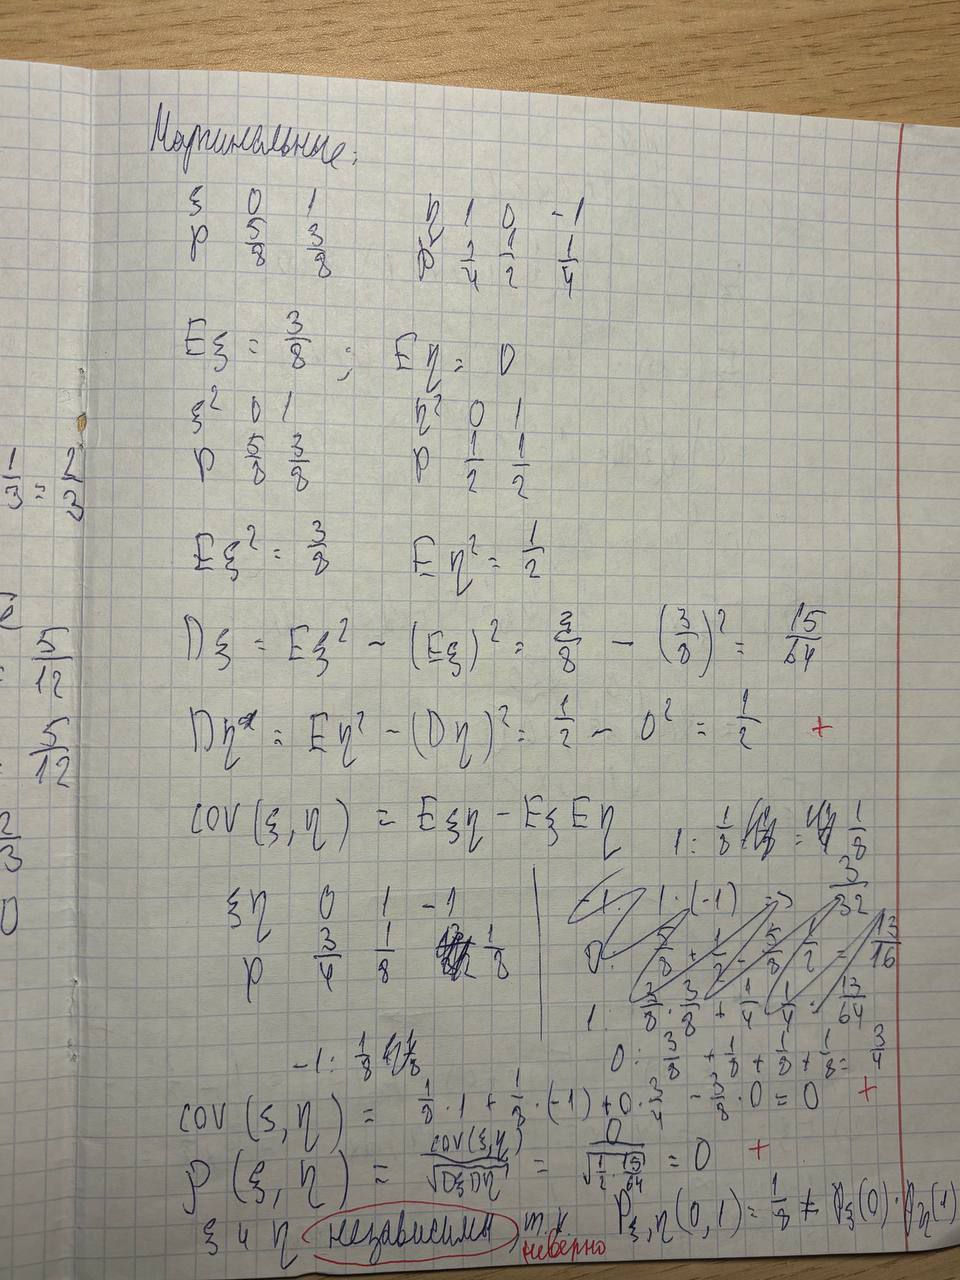 Маргинальные:
ξ 0 1 η 1 0 -1
P 5/8 3/8 P 1/4 1/2 1/4
Eξ = 3/8 ; Eη = 0
ξ² 0 1 η² 0 1
P 5/8 3/8 P 1/2 1/2
1/3 = 2/3
Eξ² = 3/8 Eη² = 1/2
5/12
Dξ = Eξ² - (Eξ)² = 3/8 - (3/8)² = 15/64
5/12
Dη = Eη² - (Dη)² = 1/2 - 0² = 1/2 +
2/3
cov(ξ,η) = Eξη - EξEη
1: 1/8 = 1/8
0
ξη 0 1 -1
P 3/4 1/8 1/8
-1: 1·(-1) 3/32
0: 5/8 + 1/2 - 5/8 · 1/2 = 13/16
1: 3/8 · 3/8 + 1/4 · 1/4 = 13/64
-1: 1/8
0: 3/8 + 1/8 + 1/8 + 1/8 = 3/4
cov(ξ,η) = 1/8 · 1 + 1/8 · (-1) + 0 · 3/4 - 3/8 · 0 = 0 +
ρ(ξ,η) = cov(ξ,η)/√DξDη = 0/√1/2 · 15/64 = 0 +
ξ и η независимы, т.к. P ξ,η (0,1) = 1/8 ≠ Pξ(0) · Pη(1)
неверно